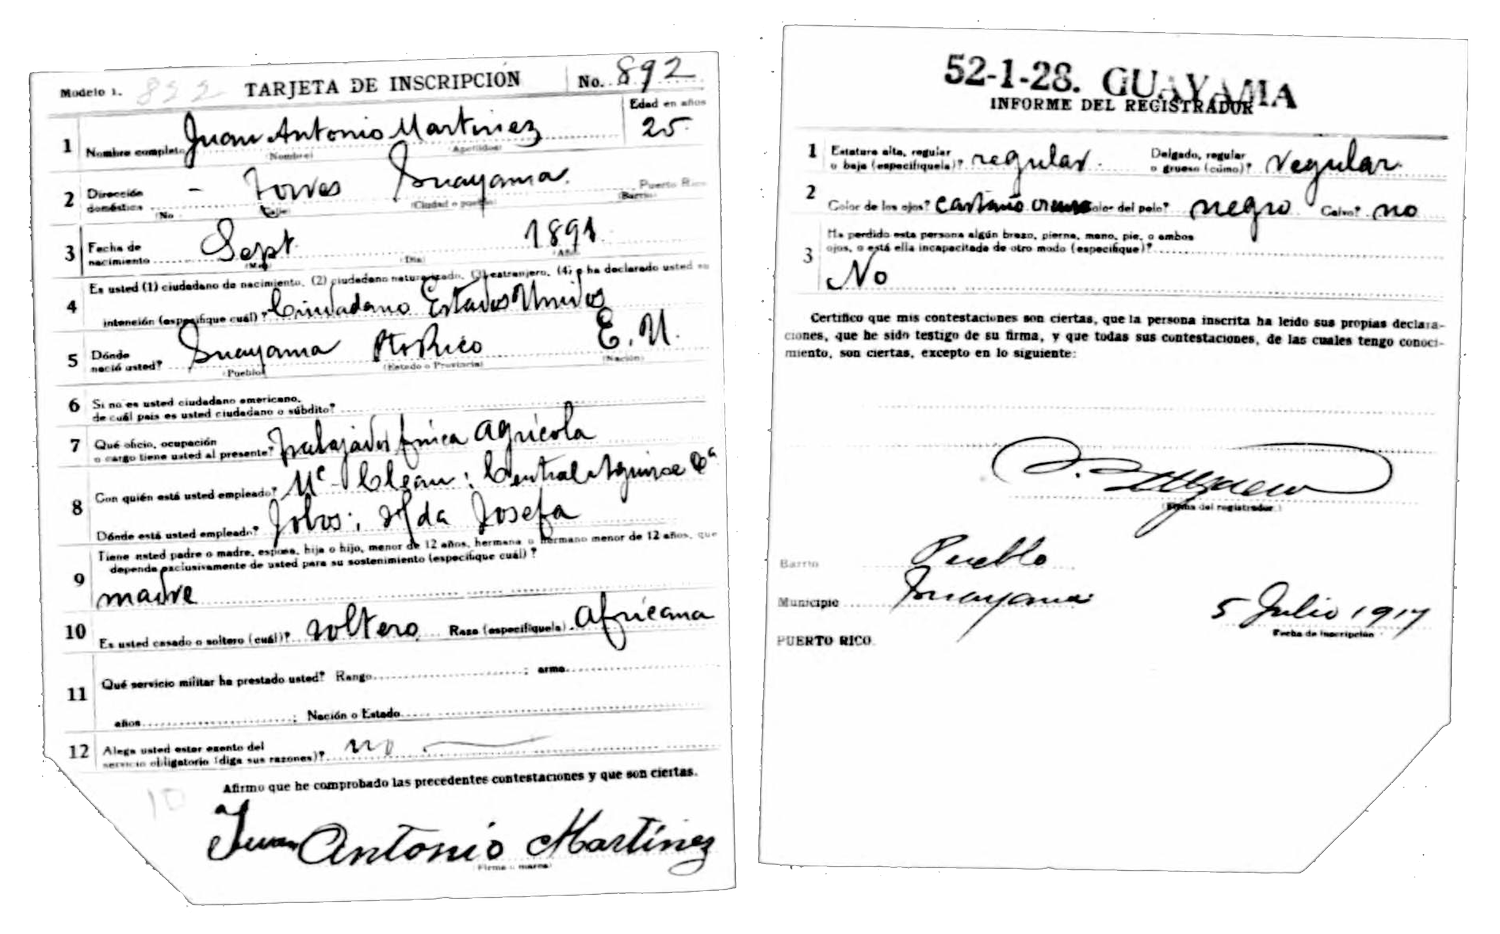 Modelo 1. 892 TARJETA DE INSCRIPCIÓN No. 892
Edad en años
1 Nombre completo Juan Antonio Martinez 25
(Nombre) (Apellidos)
2 Dirección doméstica - Torres Guayama. Puerto Rico
(No (Calle) (Ciudad o pueblo) (Barrio)
3 Fecha de nacimiento Sept. 1891
(Mes) (Día) (Año)
4 Es usted (1) ciudadano de nacimiento, (2) ciudadano naturalizado, (3) extranjero, (4) o ha declarado usted su
intención (especifique cuál)? Ciudadano Estados Unidos
5 Dónde nació usted? Guayama Pto Rico E. U.
(Pueblo) (Estado o Provincia) (Nación)
6 Si no es usted ciudadano americano,
de cuál país es usted ciudadano o súbdito?
7 Qué oficio, ocupación
o cargo tiene usted al presente? Trabajador finca agrícola
8 Con quién está usted empleado? Mc Clean; Central Aguirre Ca
Dónde está usted empleado? Jobos; Hda Josefa
9 Tiene usted padre o madre, esposa, hija o hijo, menor de 12 años, hermana o hermano menor de 12 años, que
dependa exclusivamente de usted para su sostenimiento (especifique cuál)?
madre
10 Es usted casado o soltero (cuál)? soltero Raza (especifíquela) Africana
11 Qué servicio militar ha prestado usted? Rango ; arma
años ; Nación o Estado
12 Alega usted estar exento del
servicio obligatorio (diga sus razones)? no
Afirmo que he comprobado las precedentes contestaciones y que son ciertas.
10
Juan Antonio Martínez
(Firma o marca)
52-1-28. GUAYAMA
INFORME DEL REGISTRADOR
1 Estatura alta, regular
o baja (especifíquela)? regular. Delgado, regular
o grueso (cómo)? regular.
2 Color de los ojos? castaño Color del pelo? negro Calvo? no
3 Ha perdido esta persona algún brazo, pierna, mano, pie, o ambos
ojos, o está ella incapacitada de otro modo (especifique)?
No
Certifico que mis contestaciones son ciertas, que la persona inscrita ha leído sus propias declara-
ciones, que he sido testigo de su firma, y que todas sus contestaciones, de las cuales tengo conoci-
miento, son ciertas, excepto en lo siguiente:
(Firma del registrador)
Barrio Pueblo
Municipio Guayama 5 Julio 1917
Fecha de inscripción
PUERTO RICO.